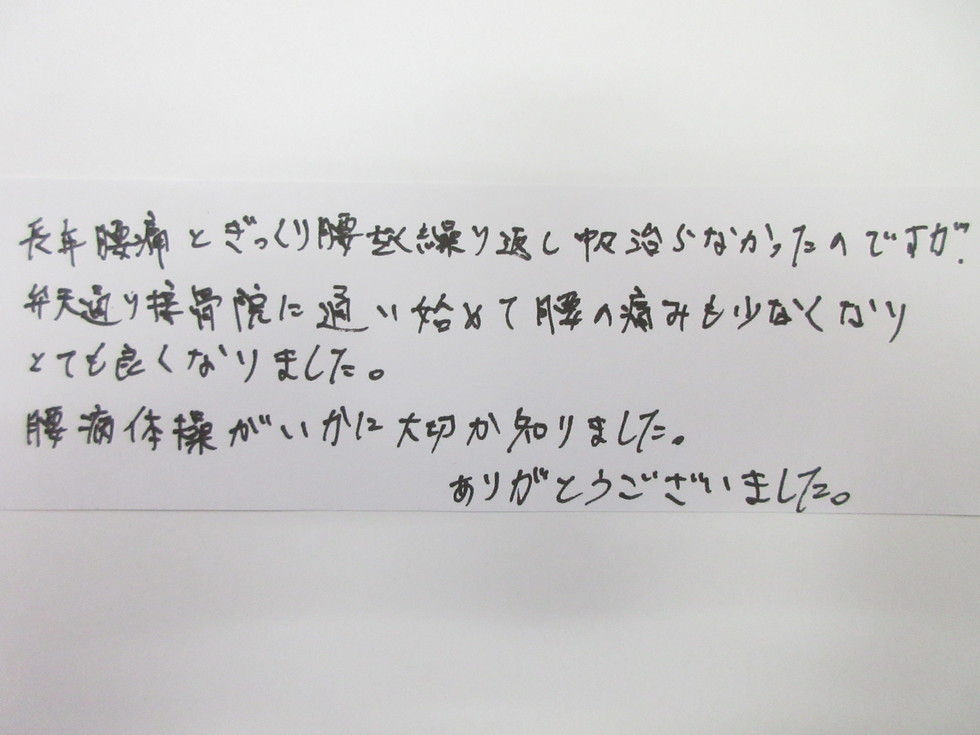 長年腰痛とぎっくり腰を繰り返し中々治らなかったのですが、
弁天通り接骨院に通い始めて腰の痛みも少なくなり
とても良くなりました。
腰痛体操がいかに大切か知りました。
ありがとうございました。